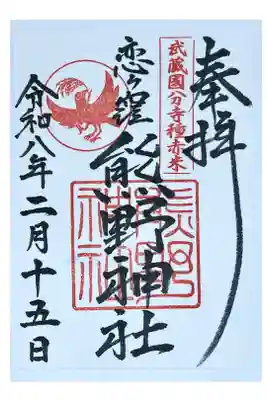 奉拝
武蔵國分寺種赤米
恋ヶ窪
熊野神社
令和八年二月十五日